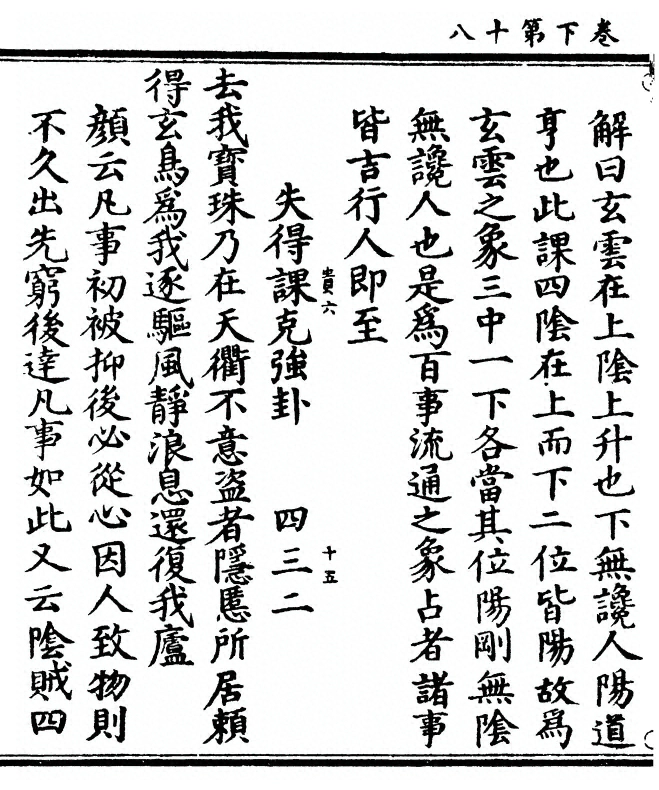 卷下第十八
解曰玄雲在上陰上升也下無讒人陽道
亨也此課四陰在上而下二位皆陽故爲
玄雲之象三中一下各當其位陽剛無陰
無讒人也是爲百事流通之象占者諸事
皆吉行人即至
失得課克強卦 四三二
貴六 十五
去我寶珠乃在天衢不意盜者隱慝所居賴
得玄鳥爲我逐驅風靜浪息還復我廬
顏云凡事初被抑後必從心因人致物則
不久出先窮後達凡事如此又云陰賊四